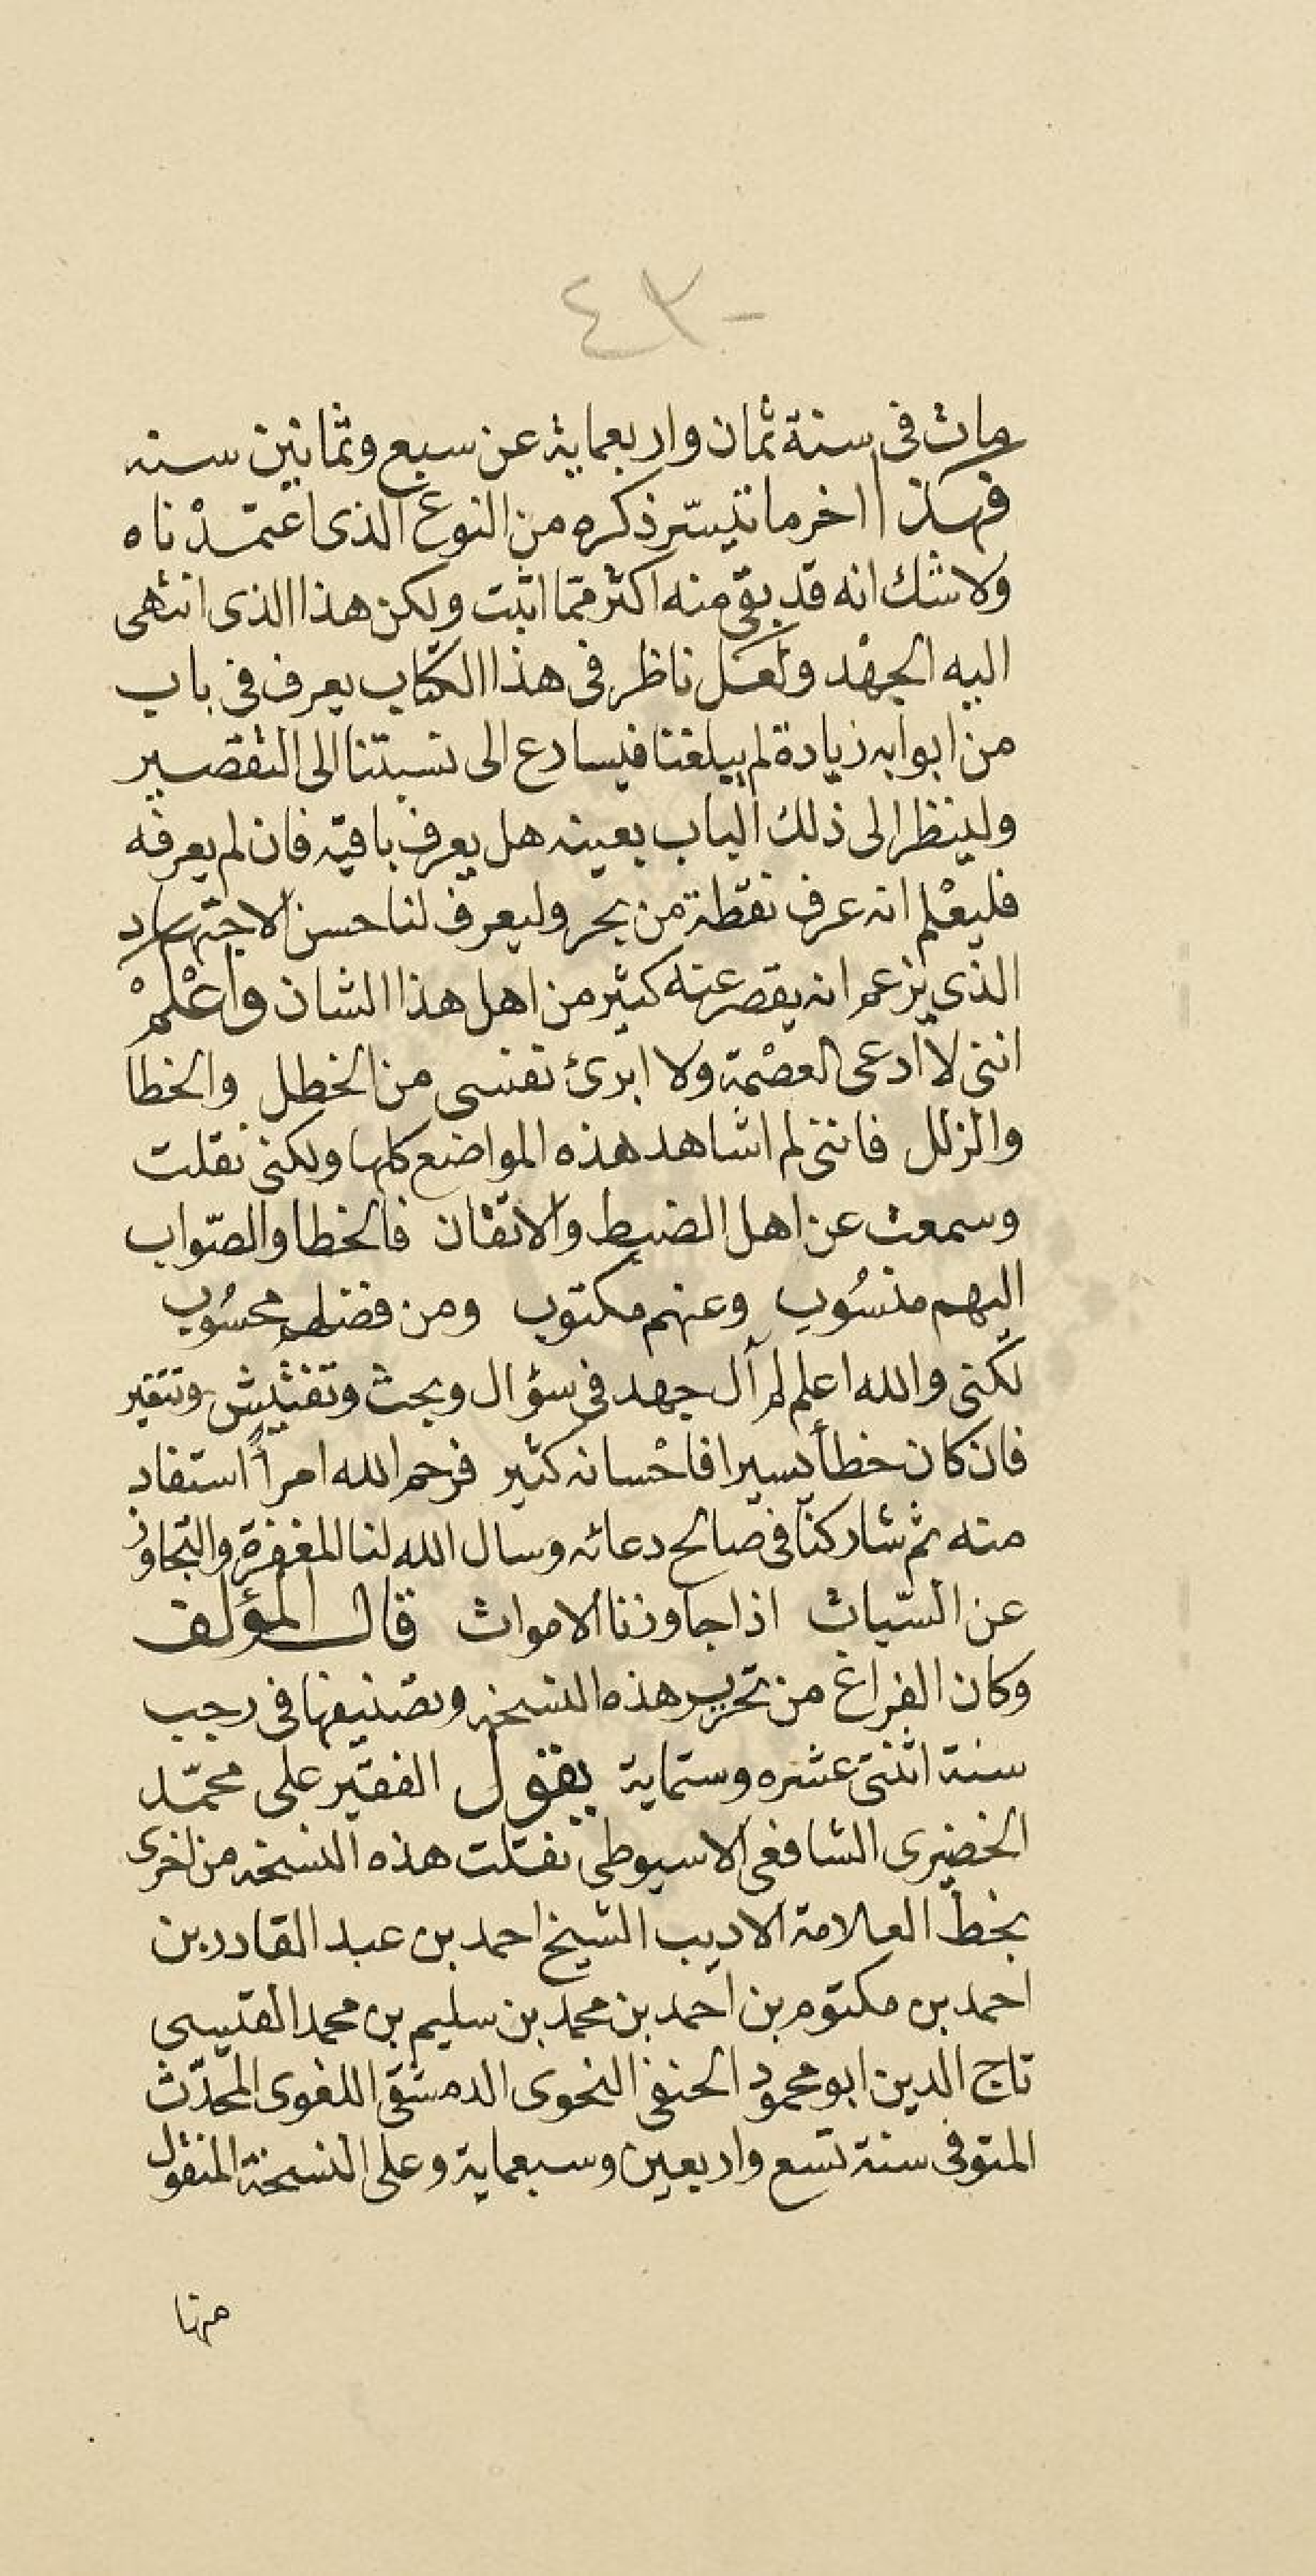 -٤٣
مات فى سنة ثمان واربعماية عن سبع وثمانين سنه
فهذا اخر ما تيسّر ذكره من النوع الذى اعتمدْناه
ولا شك انه قد بقى منه اكثر ممّا اثبت ولكن هذا الذى انتهى
اليه الجهْد ولَعَل ناظر فى هذا الكتاب يعرف فى باب
من ابوابه زيادة لم يبلغنا فيسارع الى نسبتنا الى التقصير
ولينظر الى ذلك الباب بعينه هل يعرف باقيه فان لم يعرفه
فليعْلم انه عرف نقطة من بحر وليعرف لنا حسن الاجتهاد
الذى يزعم انه يقصر عنه كثير من اهل هذا الشان واعْلمْ
اننى لا ادعى العصْمة ولا ابرئ نفسى من الخطل والخطا
والزلل فاننى لم اشاهد هذه المواضع كلها ولكنى نقلت
وسمعت عن اهل الضبط والاتقان فالخطا والصّواب
اليهم منسُوب وعنهم مكتوب ومن فضلهم محسُوب
لكنى والله اعلم لم آل جهد فى سؤال وبحث وتفتيش وتنقير
فان كان خطأ يسيرا فاحْسانه كثير فرحم الله امرأً استفاد
منه ثم شاركنا فى صالح دعائه وسال الله لنا المغفرة والتجاوز
عن السّيات اذا جاوزنا الاموات قال المؤلف
وكان الفراغ من تحرير هذه النسخه وتصنيفها فى رجب
سنة اثنتى عشره وستماية يقول الفقير على محمّد
الخضيرى الشافعى الاسيوطى نقلت هذه النسخه من اخرى
بخطّ العلامة الاديب الشيخ احمد بن عبد القادر بن
احمد بن مكتوم بن احمد بن محمد بن سليم بن محمد القيسى
تاج الدين ابو محمود الحنفى النحوى الدمشقى اللغوى المحدّث
المتوفى سنة تسع واربعين وسبعماية وعلى النسخة المنقول
منها